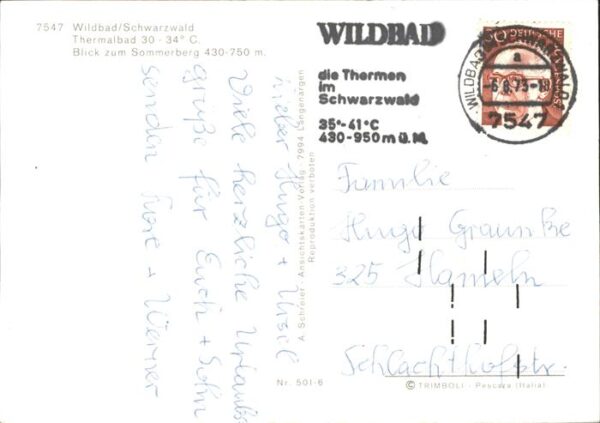 7547 Wildbad/Schwarzwald
Thermalbad 30 - 34° C.
Blick zum Sommerberg 430-750 m.
Lieber Hugo + Ursel
Viele herzliche Urlaubs-
grüße für Euch + Sohn
senden + Werner
A. Schreier - Ansichtskarten-Verlag - 7994 Langenargen
Reproduktion verboten
Nr. 501-6
WILDBAD
die Thermen
im
Schwarzwald
35°-41°C
430-950 m ü.M.
WILDBAD
a
-6.8.73-18
7547
Familie
Hugo Graunke
325 Hameln
Schlachthofstr.
© TRIMBOLI - Pescara (Italia)